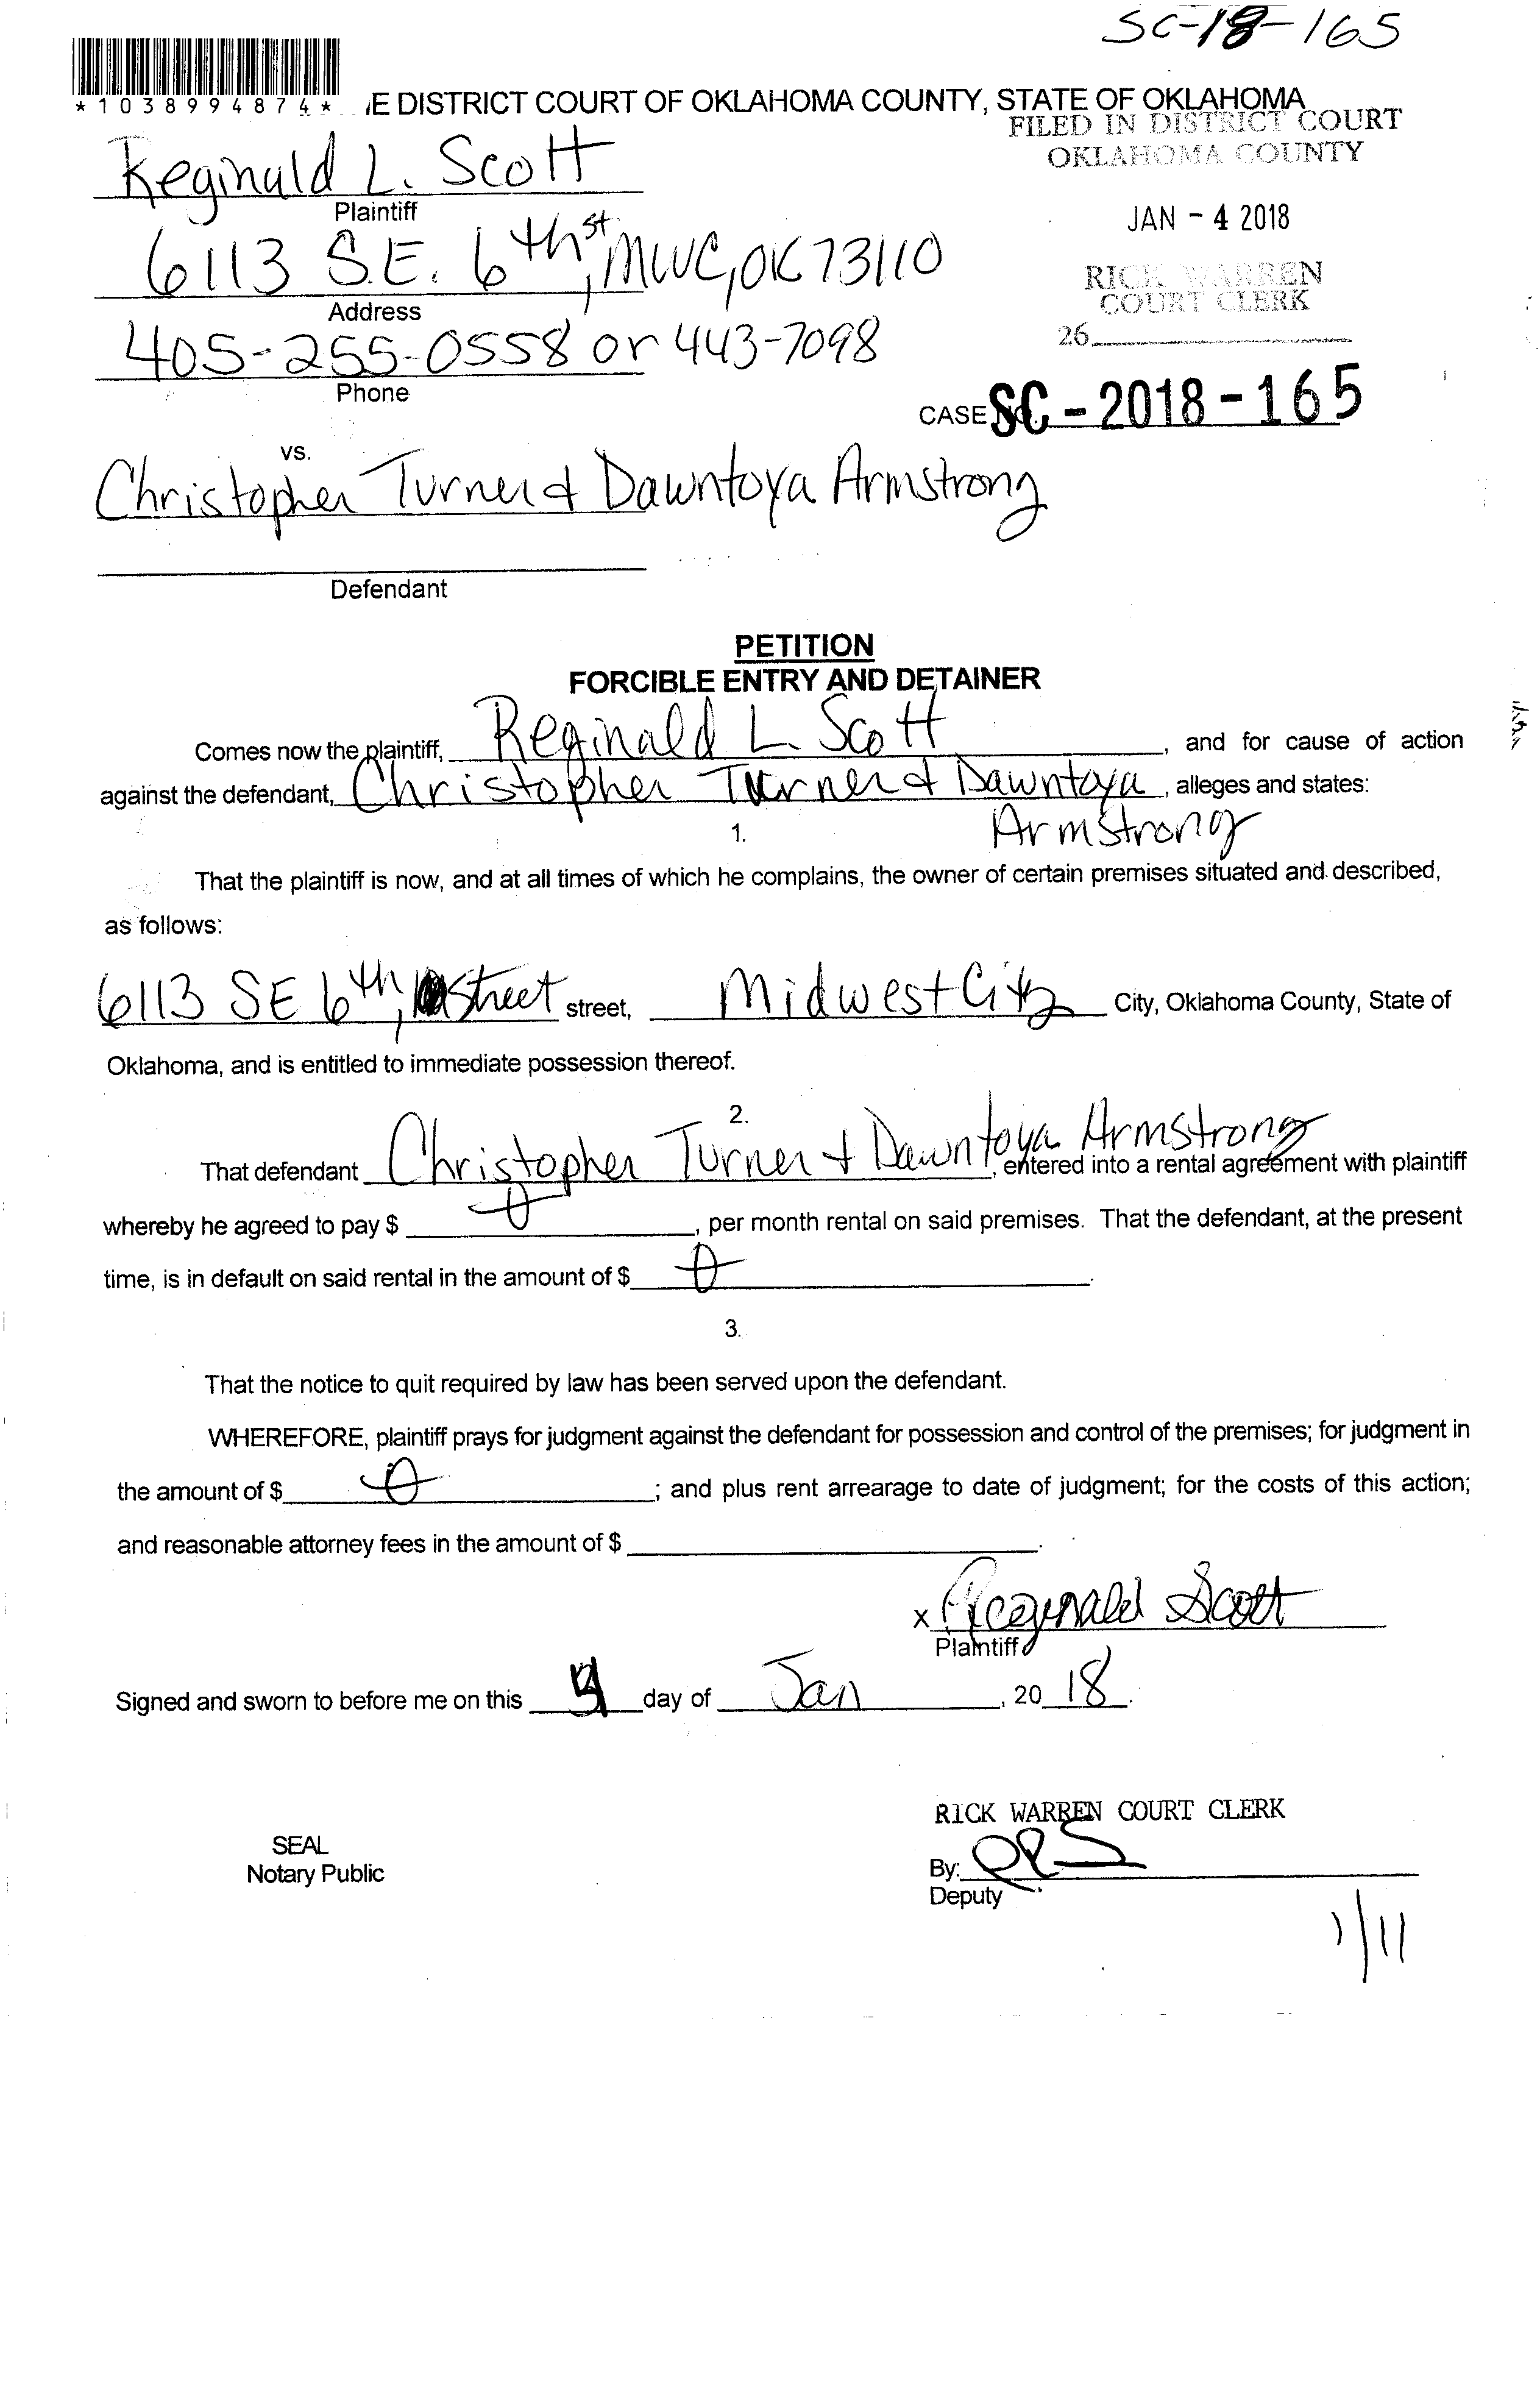 SC-18-165
*1038994874* E DISTRICT COURT OF OKLAHOMA COUNTY, STATE OF OKLAHOMA
FILED IN DISTRICT COURT
OKLAHOMA COUNTY
Reginald L. Scott
Plaintiff
JAN - 4 2018
6113 S.E. 6th st, MWC, OK 73110
Address
RICK WARREN
COURT CLERK
405-255-0558 or 443-7098
Phone
26
CASE NO. SC - 2018 - 165
vs.
Christopher Turner & Dawntoya Armstrong
Defendant
PETITION
FORCIBLE ENTRY AND DETAINER
Comes now the plaintiff, Reginald L. Scott, and for cause of action
against the defendant, Christopher Turner & Dawntoya, alleges and states:
Armstrong
1.
That the plaintiff is now, and at all times of which he complains, the owner of certain premises situated and described,
as follows:
6113 SE 6th, street street, Midwest City City, Oklahoma County, State of
Oklahoma, and is entitled to immediate possession thereof.
2.
That defendant Christopher Turner & Dawntoya Armstrong, entered into a rental agreement with plaintiff
whereby he agreed to pay $ 0, per month rental on said premises. That the defendant, at the present
time, is in default on said rental in the amount of $ 0.
3.
That the notice to quit required by law has been served upon the defendant.
WHEREFORE, plaintiff prays for judgment against the defendant for possession and control of the premises; for judgment in
the amount of $ 0; and plus rent arrearage to date of judgment; for the costs of this action;
and reasonable attorney fees in the amount of $.
x Reginald Scott
Plaintiff
Signed and sworn to before me on this 4 day of Jan, 2018.
RICK WARREN COURT CLERK
SEAL
Notary Public
By:
Deputy
1/11